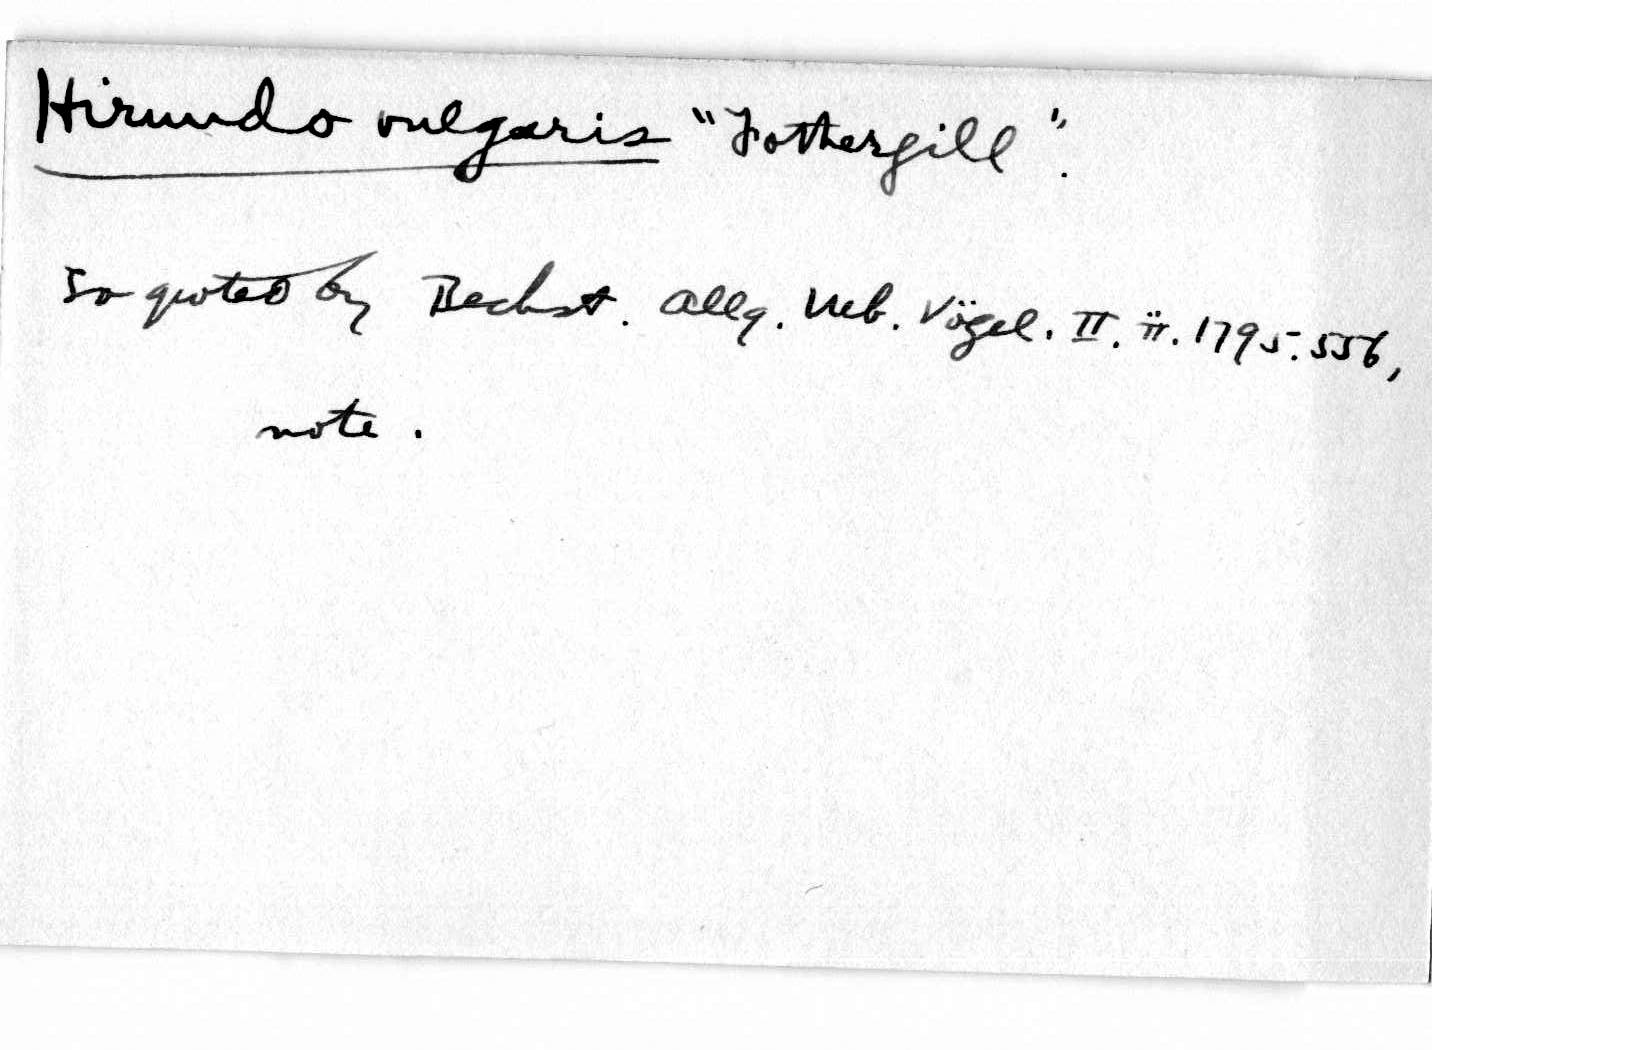 Hirundo vulgaris "Fothergill".
So quoted by Bechst. Allg. Ueb. Vögel. II. ii. 1795. 556,
note.